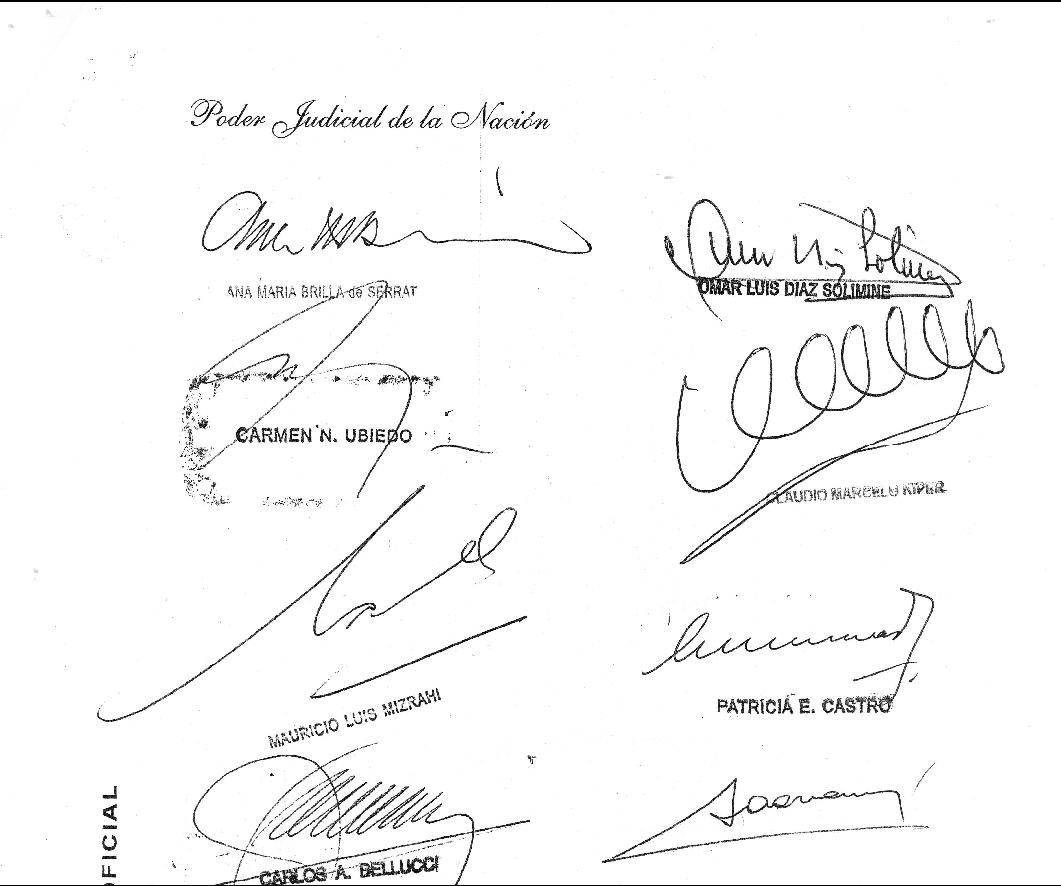 Poder Judicial de la Nación
ANA MARIA BRILLA de SERRAT
OMAR LUIS DIAZ SOLIMINE
CARMEN N. UBIEDO
CLAUDIO MARCELO KIPER
MAURICIO LUIS MIZRAHI
PATRICIA E. CASTRO
CARLOS A. BELLUCCI
FICIAL